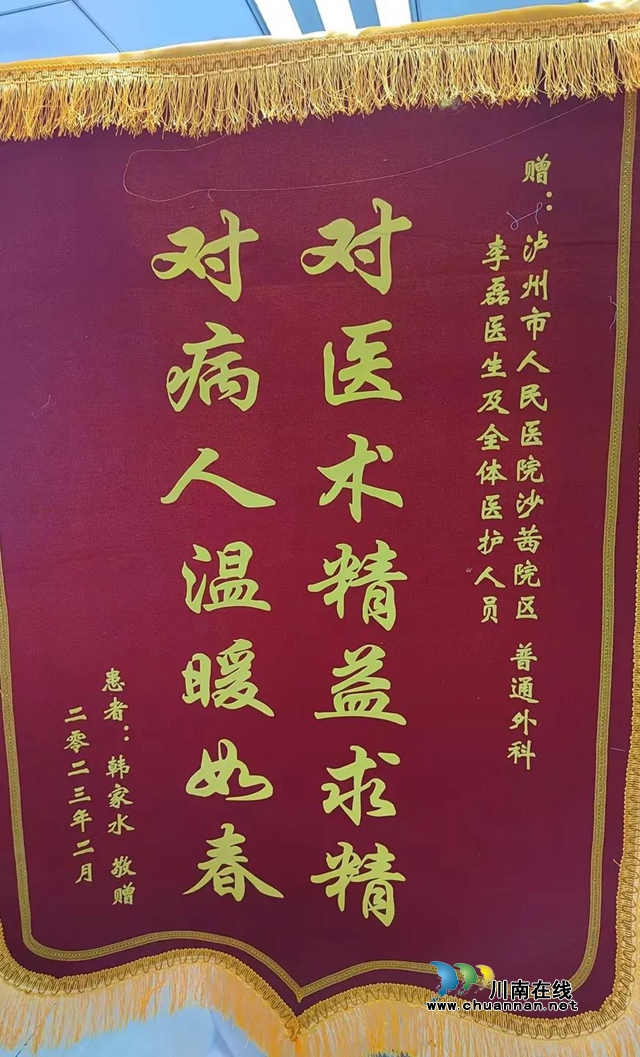 赠：泸州市人民医院沙茜院区 普通外科
李磊医生及全体医护人员
对医术精益求精
对病人温暖如春
患者：韩家水 敬赠
二零二三年二月
川南在线
www.chuannan.net